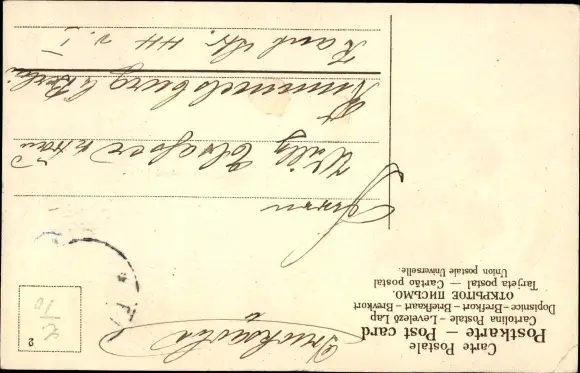 Carte Postale
Postkarte – Post card
Cartolina Postale – Levelező Lap
Dopisnice – Brefkort – Briefkaart – Brevkort
ОТКРЫТОЕ ПИСЬМО.
Tarjeta postal — Cartão postal
Union postale Universelle.
Drucksache
2
Herrn
Willy
Rummelsburg b/Berlin
Kant str. 44 v. I